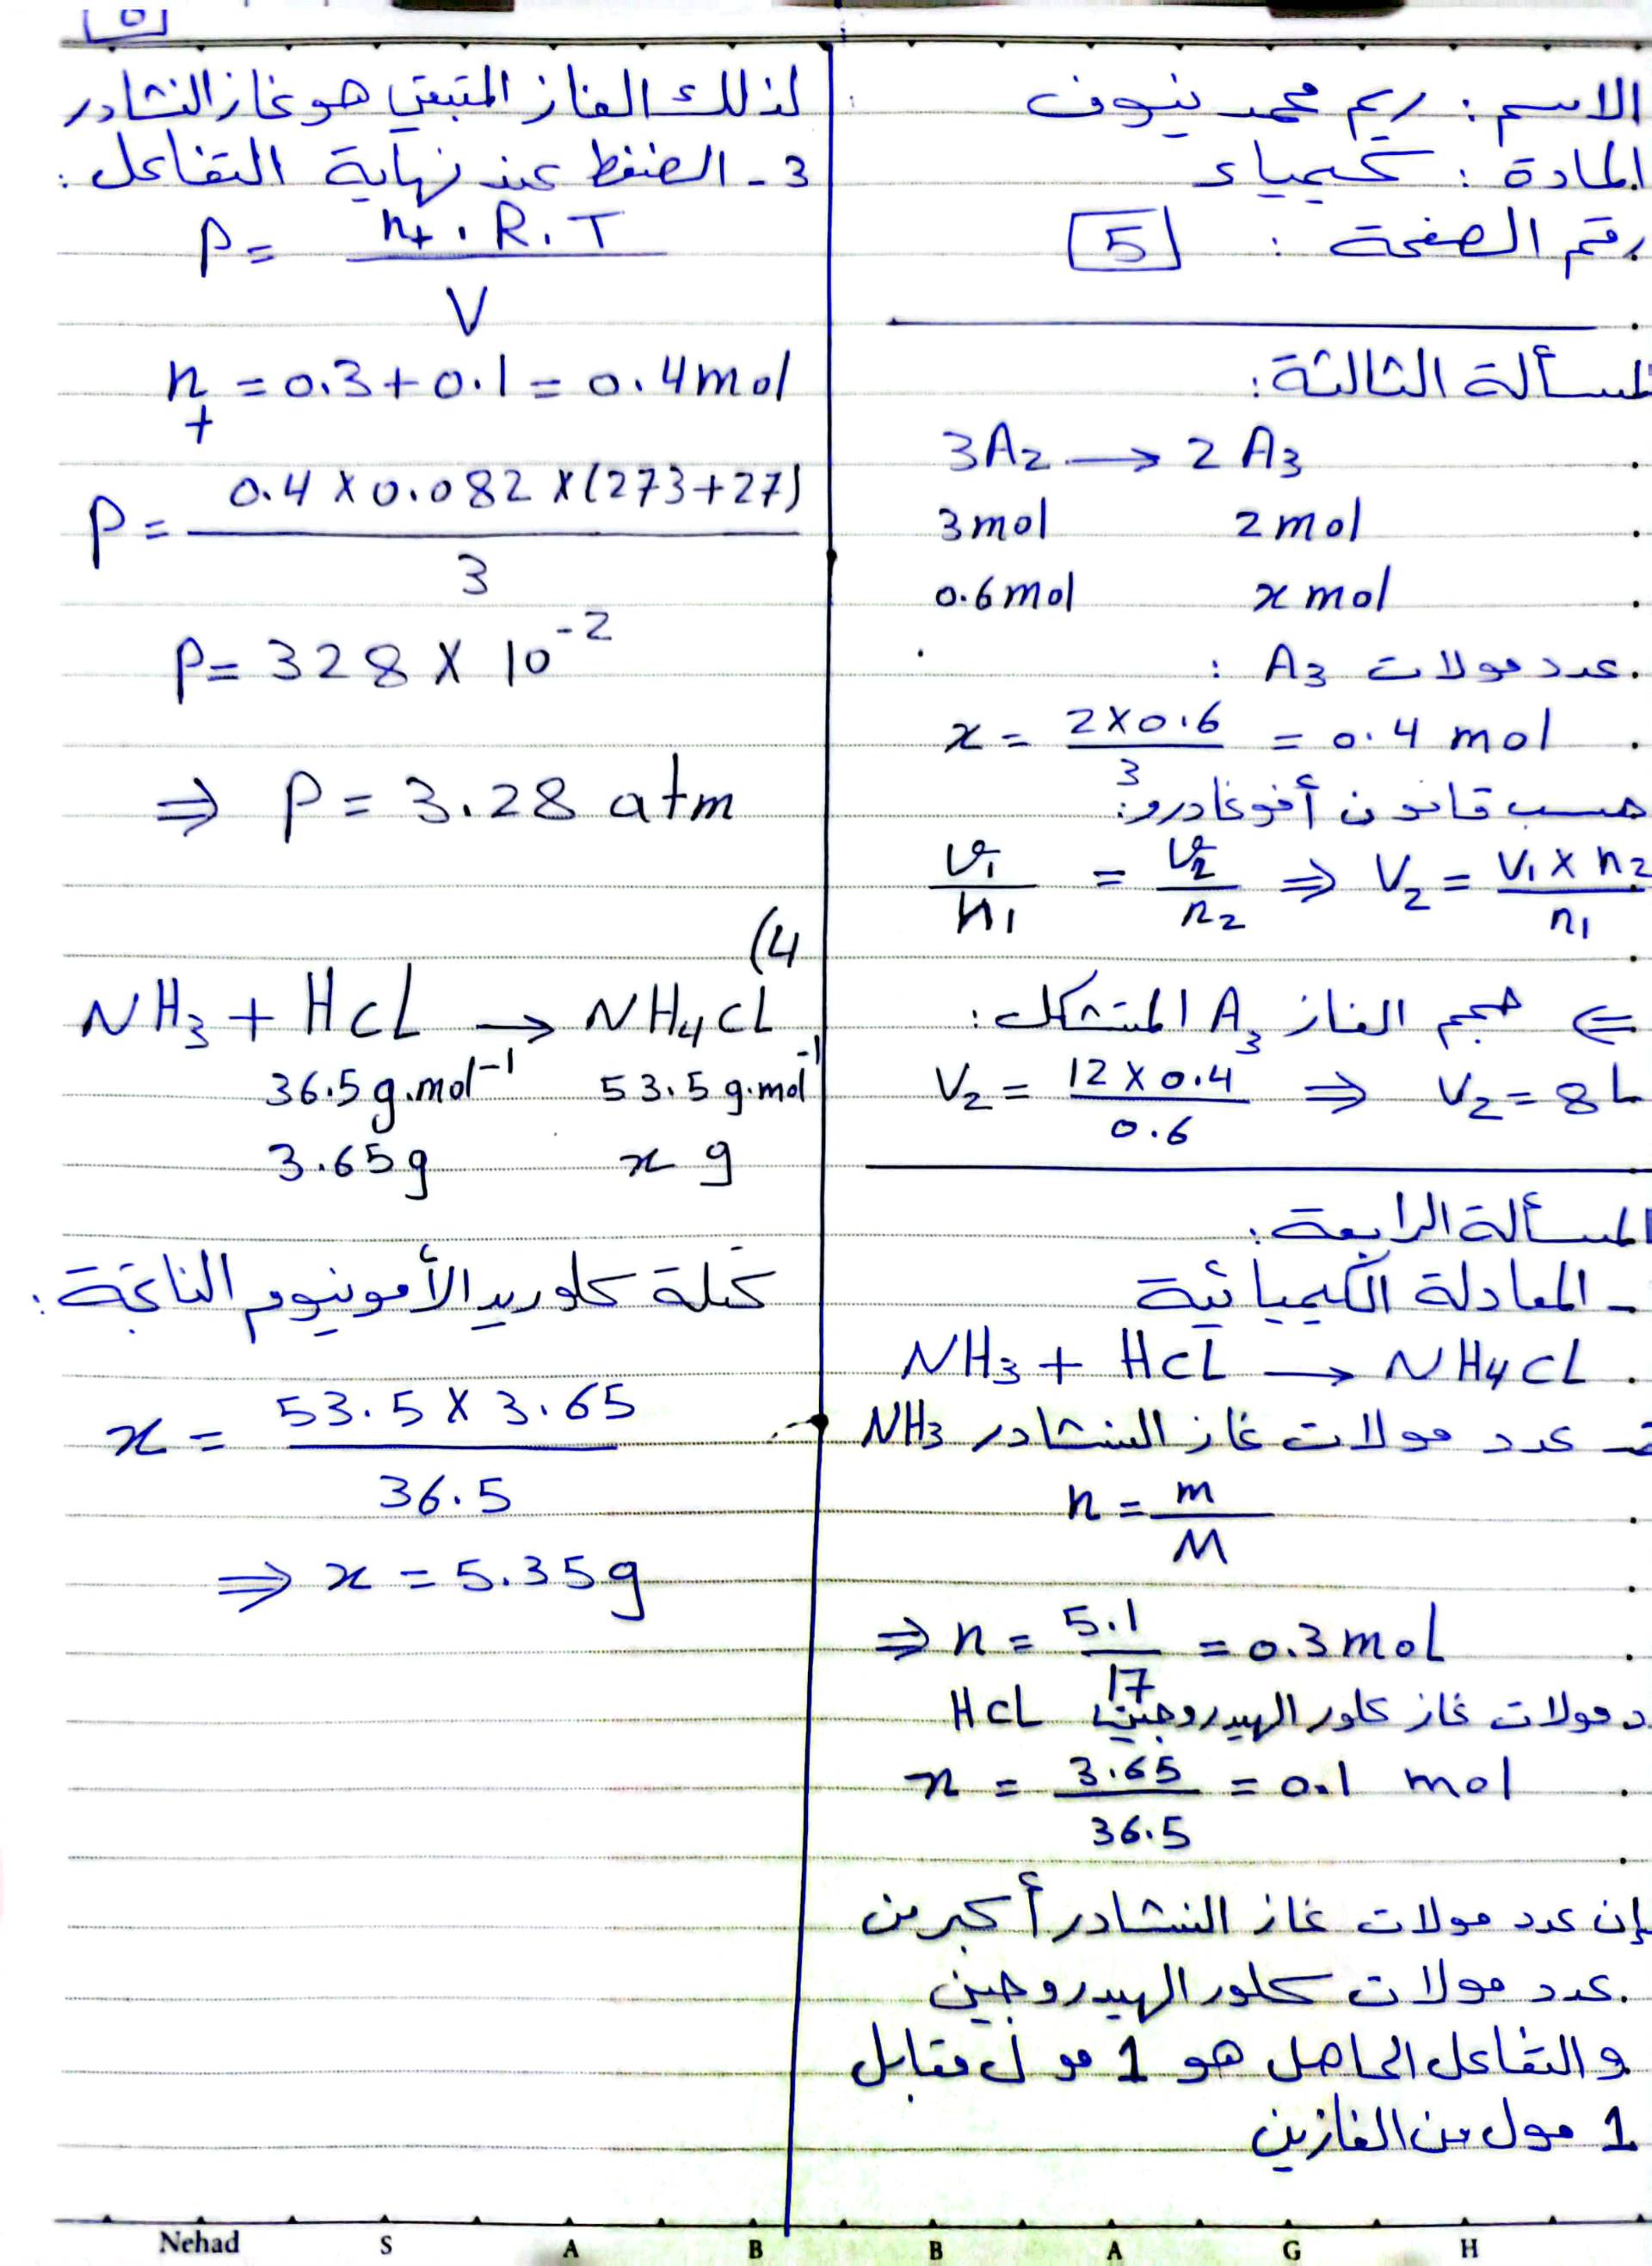 الاسم: ريم محمد نيوف
المادة: كيمياء
رقم الصفحة: 5
المسألة الثالثة:
3A2 → 2 A3
3mol 2mol
0.6mol x mol
عدد مولات A3 :
x = 2×0.6 / 3 = 0.4 mol
حسب قانون أفوغادرو:
V1/n1 = V2/n2 ⇒ V2 = V1×n2 / n1
⇐ حجم الغاز A3 المتشكل:
V2 = 12×0.4 / 0.6 ⇒ V2 = 8L
المسألة الرابعة:
- المعادلة الكيميائية
NH3 + HCL → NH4CL
عدد مولات غاز النشادر NH3
n = m / M
⇒ n = 5.1 / 17 = 0.3mol
مولات غاز كلور الهيدروجين HCL
n = 3.65 / 36.5 = 0.1 mol
إن عدد مولات غاز النشادر أكبر من
عدد مولات كلور الهيدروجين
والتفاعل الحاصل هو 1 مول مقابل
1 مول من الغازين
لذلك الغاز المتبقي هو غاز النشادر
3 - الضغط عند نهاية التفاعل:
P = nt . R . T / V
nt = 0.3 + 0.1 = 0.4mol
P = 0.4 × 0.082 × (273+27) / 3
P = 328 × 10^-2
⇒ P = 3.28 atm
(4
NH3 + HCL → NH4CL
36.5 g.mol^-1 53.5 g.mol^-1
3.65g x g
كتلة كلوريد الأمونيوم الناتجة:
x = 53.5 × 3.65 / 36.5
⇒ x = 5.35g
Nehad S A B B A G H